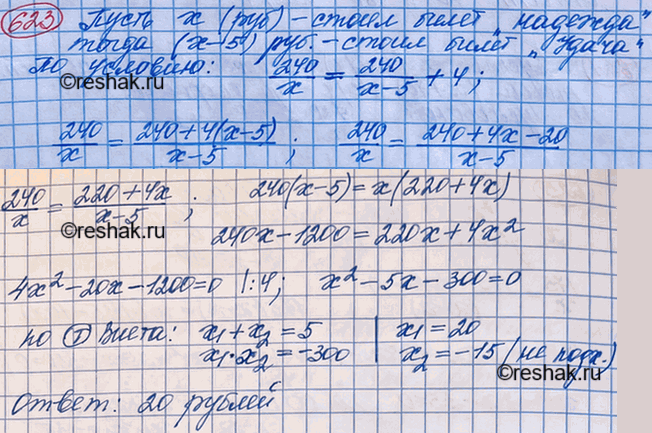 623 Пусть x (руб) – стоил билет „надежда"
тогда (x-5) руб. – стоил билет „Удача"
По условию: 240/x = 240/(x-5) + 4;
©reshak.ru
240/x = (240+4(x-5))/(x-5); 240/x = (240+4x-20)/(x-5)
240/x = (220+4x)/(x-5); 240(x-5)=x(220+4x)
©reshak.ru
240x-1200=220x+4x²
4x²-20x-1200=0 |:4; x²-5x-300=0
по Ⓣ Виета: x₁+x₂=5 | x₁=20
x₁·x₂=-300 | x₂=-15 (не подх.)
©reshak.ru
Ответ: 20 рублей